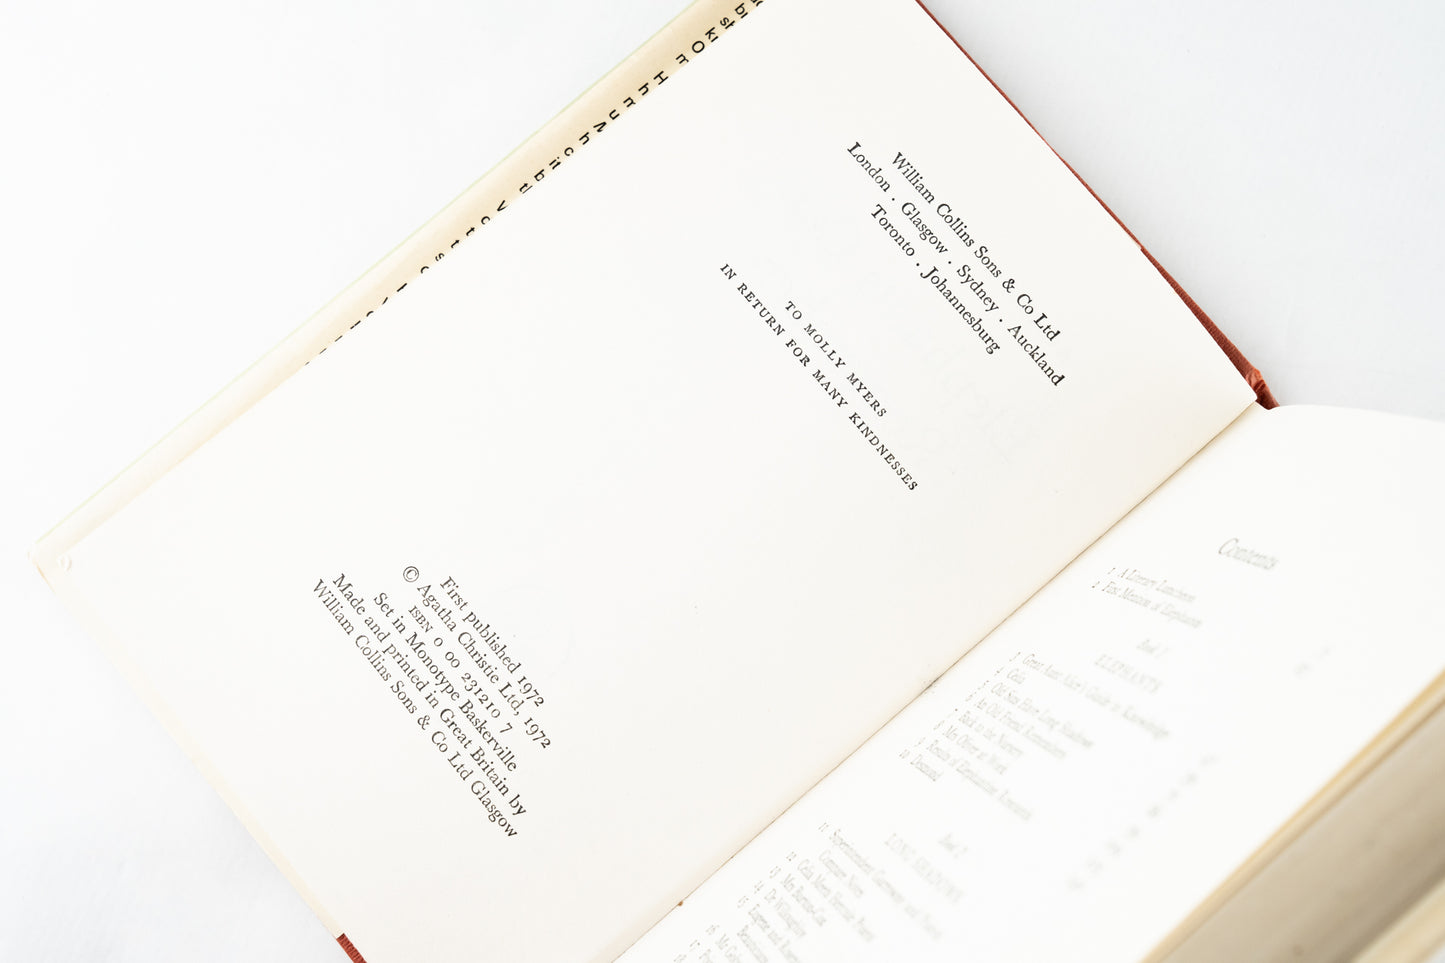 William Collins Sons & Co Ltd
London · Glasgow · Sydney · Auckland
Toronto · Johannesburg
TO MOLLY MYERS
IN RETURN FOR MANY KINDNESSES
First published 1972
© Agatha Christie Ltd, 1972
ISBN 0 00 231210 7
Set in Monotype Baskerville
Made and printed in Great Britain by
William Collins Sons & Co Ltd Glasgow
Contents
1 A Literary Luncheon
2 First Mention of Elephants
Book 1
ELEPHANTS
3 Great Aunt Alice's Guide to Knowledge
4 Celia
5 Old Sins Have Long Shadows
6 An Old Friend Remembers
7 Back to the Nursery
8 Mrs Oliver at Work
9 Results of Elephantine Research
10 Desmond
Book 2
LONG SHADOWS
11 Superintendent Garroway and Poirot
Compare Notes
12 Celia Meets Hercule Poirot
13 Mrs Burton-Cox
14 Dr Willoughby
15
16
17